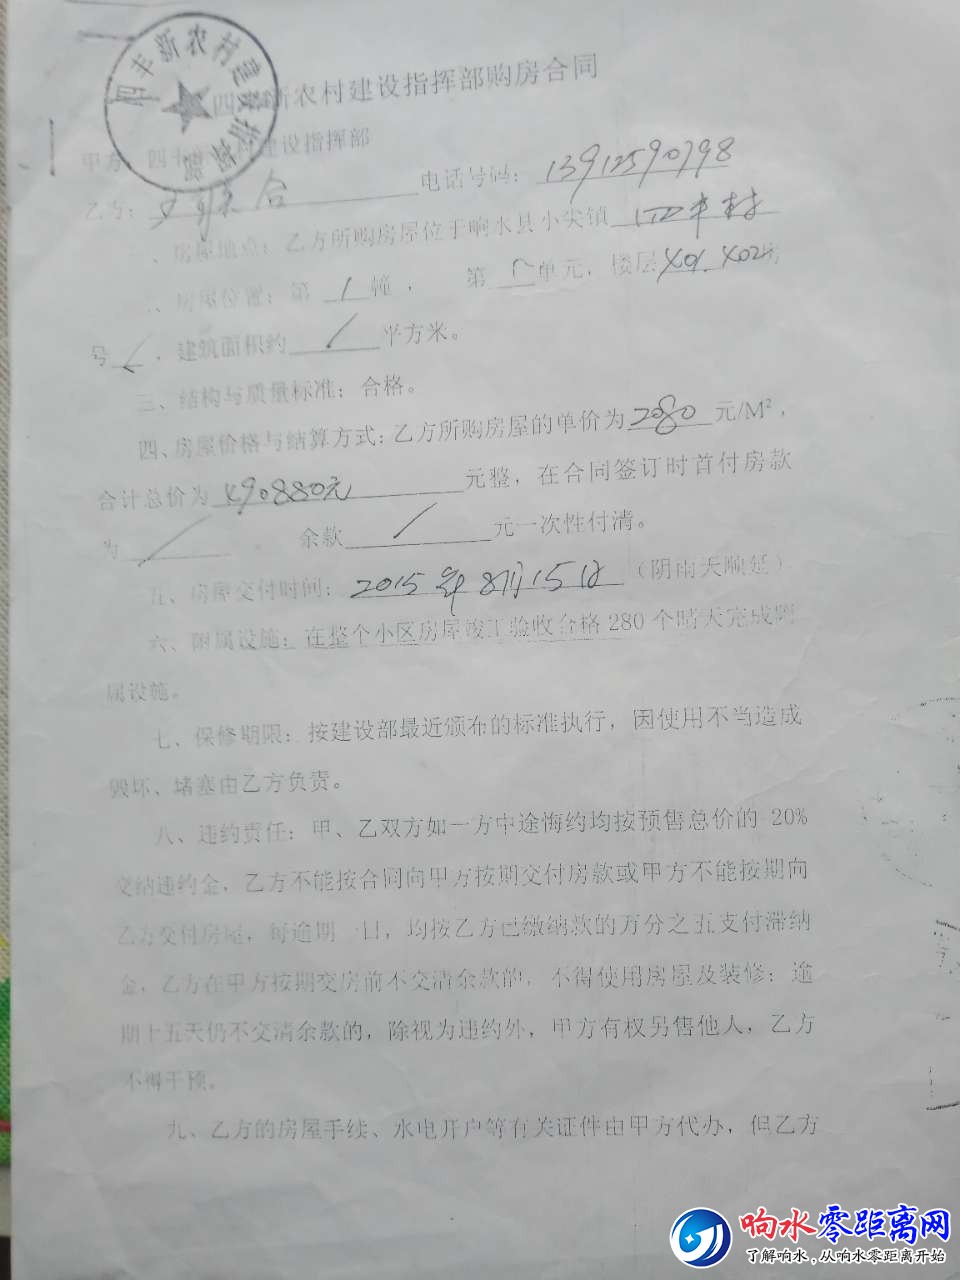 四丰新农村建设指挥部
四丰新农村建设指挥部购房合同
甲方：四丰新农村建设指挥部
乙方： 合 电话号码：13912590798
一、房屋地点：乙方所购房屋位于响水县小尖镇四丰村
二、房屋位置：第 1 幢， 第 单元，楼层401.402
号 ／ ，建筑面积约 ／ 平方米。
三、结构与质量标准：合格。
四、房屋价格与结算方式：乙方所购房屋的单价为2080元/M²，
合计总价为490880元 元整，在合同签订时首付房款
为 ／ 余款 ／ 元一次性付清。
五、房屋交付时间：2015年8月15日（阴雨天顺延）
六、附属设施：在整个小区房屋竣工验收合格 280 个晴天完成附
属设施。
七、保修期限：按建设部最近颁布的标准执行，因使用不当造成
毁坏、堵塞由乙方负责。
八、违约责任：甲、乙双方如一方中途悔约均按预售总价的 20%
交纳违约金，乙方不能按合同向甲方按期交付房款或甲方不能按期向
乙方交付房屋，每逾期一日，均按乙方已缴纳款的万分之五支付滞纳
金，乙方在甲方按期交房前不交清余款的，不得使用房屋及装修；逾
期十五天仍不交清余款的，除视为违约外，甲方有权另售他人，乙方
不得干预。
九、乙方的房屋手续、水电开户等有关证件由甲方代办，但乙方
响水零距离网
了解响水，从响水零距离开始